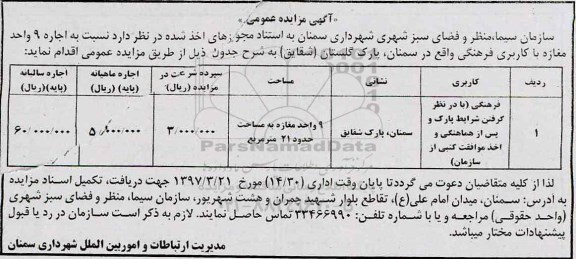 «آگهی مزایده عمومی»
سازمان سیما،منظر و فضای سبز شهری شهرداری سمنان به استناد مجوزهای اخذ شده در نظر دارد نسبت به اجاره ۹ واحد
مغازه با کاربری فرهنگی واقع در سمنان، پارک گلستان (شقایق) به شرح جدول ذیل از طریق مزایده عمومی اقدام نماید:
ردیف کاربری نشانی مساحت سپرده شرکت در مزایده (ریال) اجاره ماهیانه (پایه) (ریال) اجاره سالیانه (پایه)(ریال)
۱ فرهنگی (با در نظر گرفتن شرایط پارک و پس از هماهنگی و اخذ موافقت کتبی از سازمان) سمنان، پارک شقایق ۹ واحد مغازه به مساحت حدود ۲۱ مترمربع ۳/۰۰۰/۰۰۰ ۵/۰۰۰/۰۰۰ ۶۰/۰۰۰/۰۰۰
لذا از کلیه متقاضیان دعوت می گردد تا پایان وقت اداری (۱۴/۳۰) مورخ ۱۳۹۷/۳/۲۱ جهت دریافت، تکمیل اسناد مزایده
به آدرس: سمنان، میدان امام علی(ع)، تقاطع بلوار شهید چمران و هشت شهریور، سازمان سیما، منظر و فضای سبز شهری
(واحد حقوقی) مراجعه و یا با شماره تلفن: ۳۳۴۶۶۹۹۰ تماس حاصل نمایند. لازم به ذکر است سازمان در رد یا قبول
پیشنهادات مختار میباشد.
مدیریت ارتباطات و اموربین الملل شهرداری سمنان
ParsNamadData